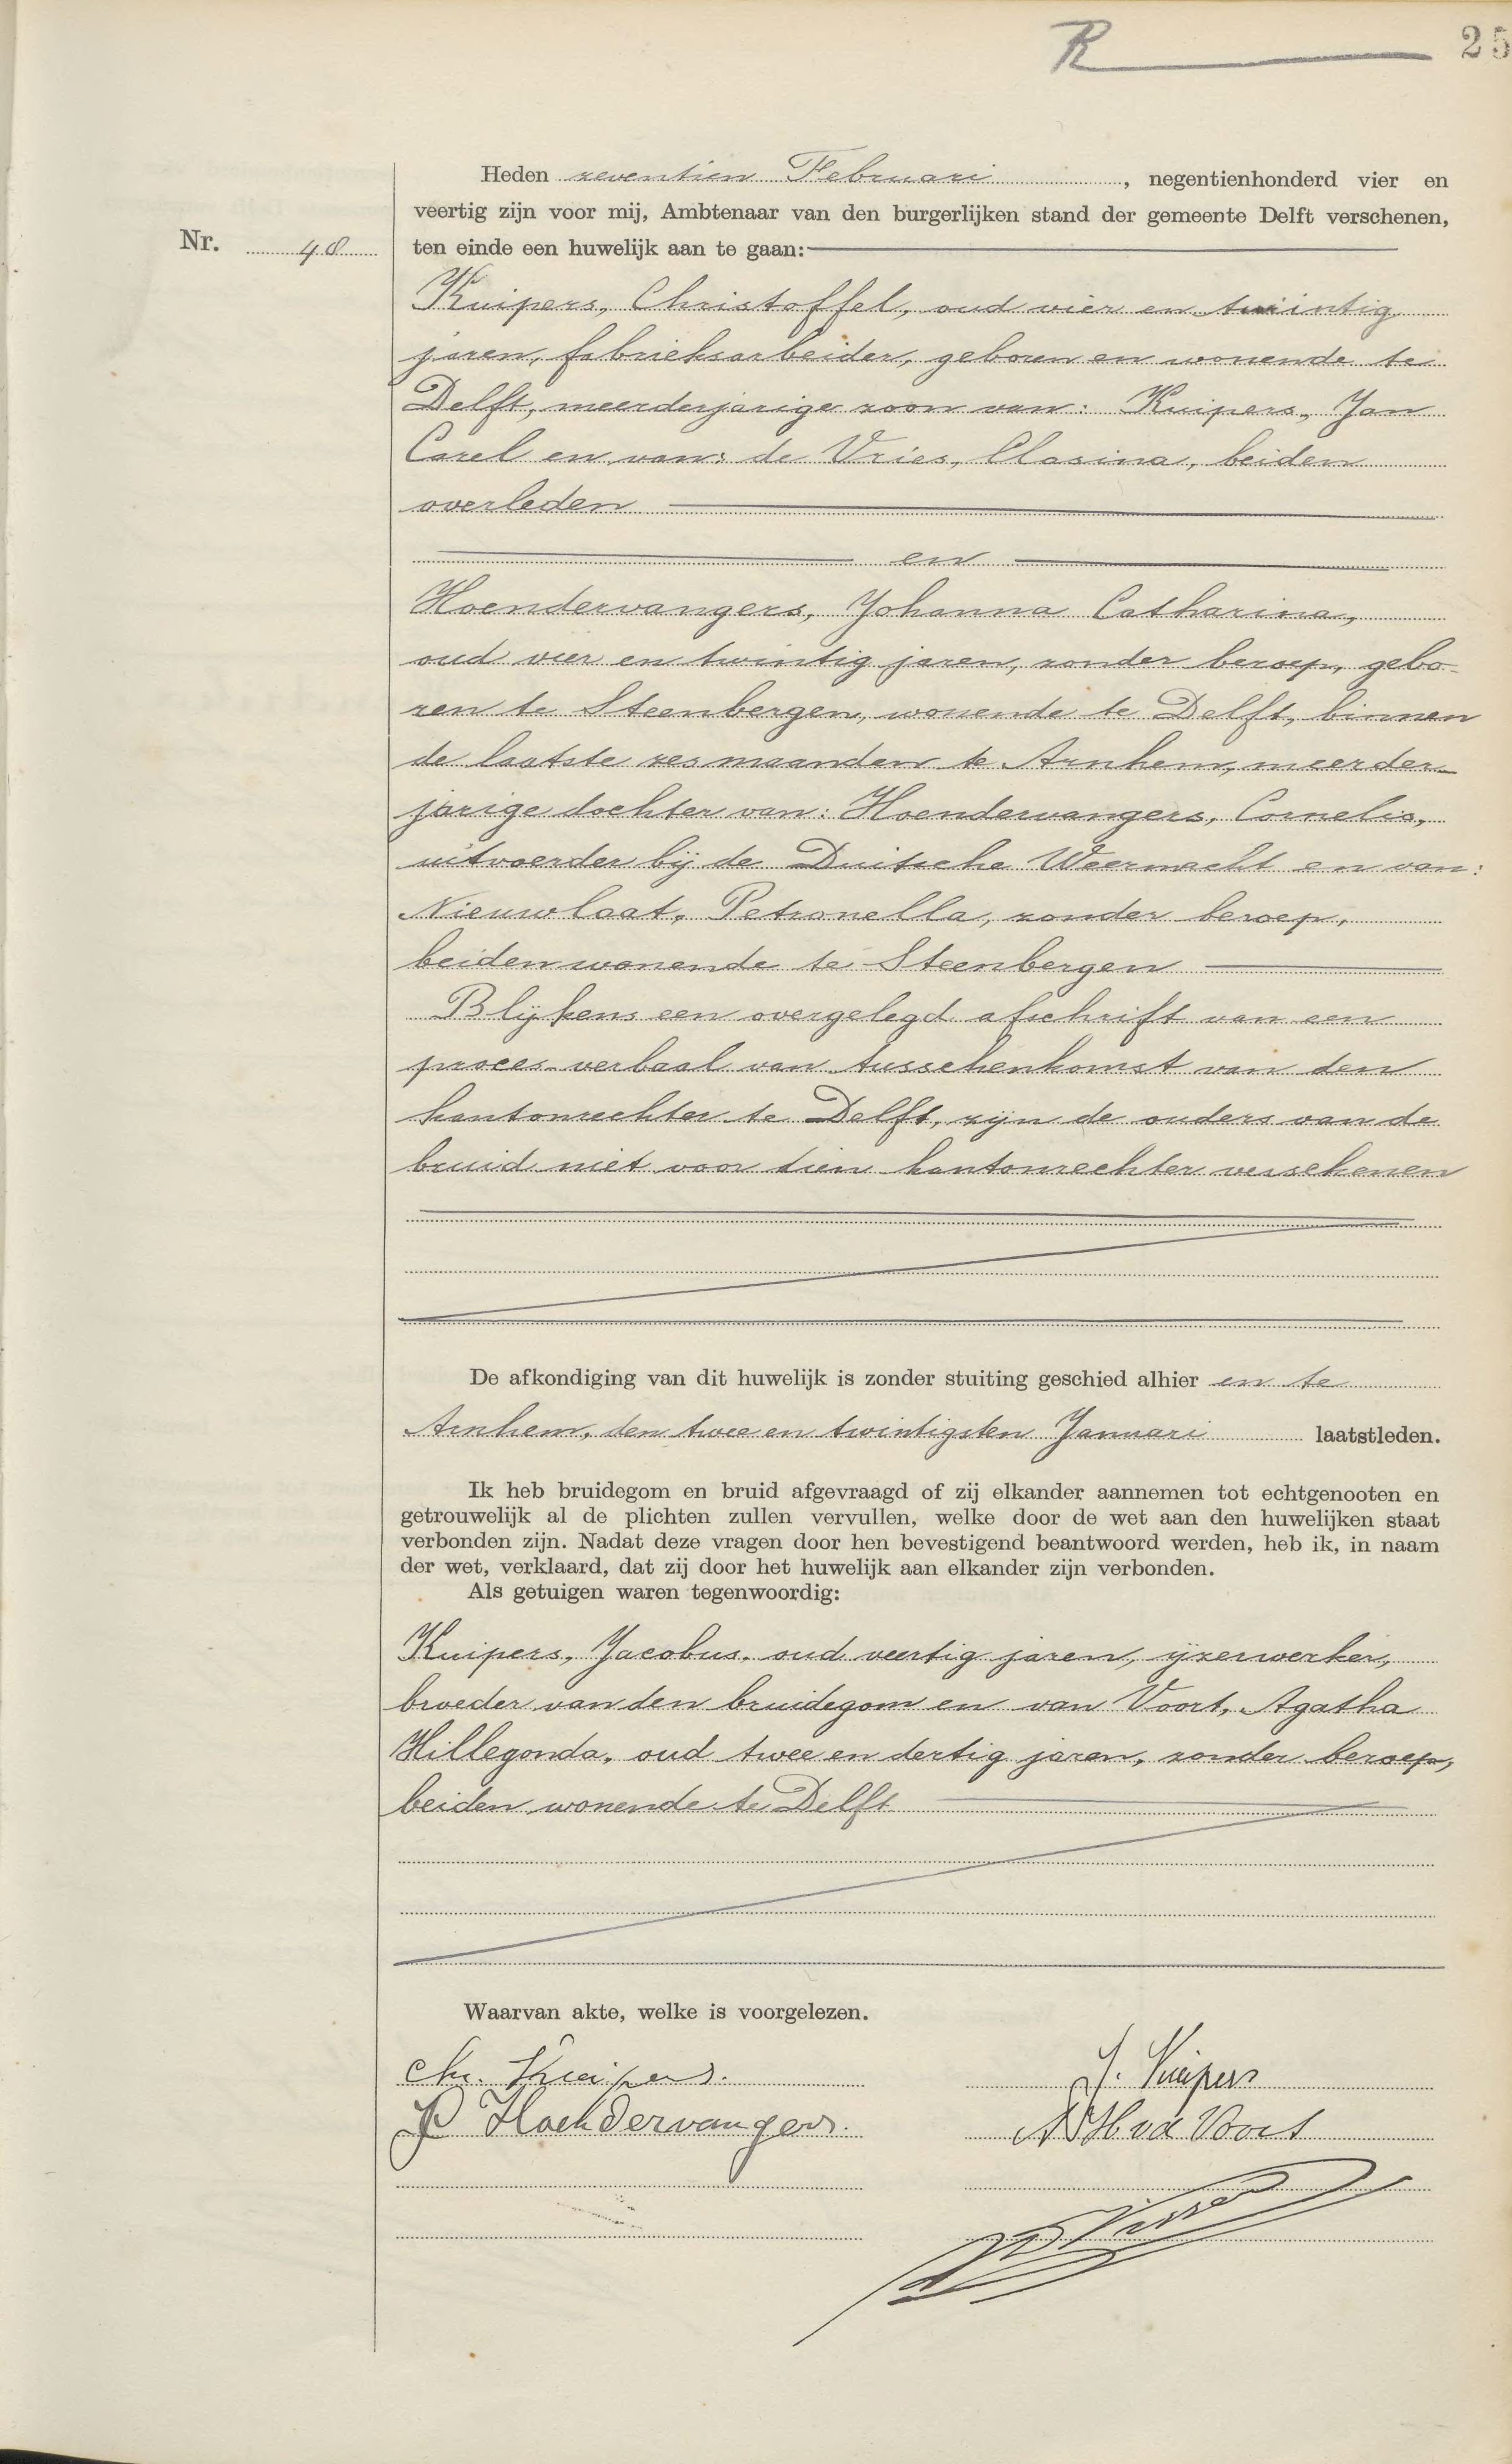 R 25
Heden zeventien Februari, negentienhonderd vier en
veertig zijn voor mij, Ambtenaar van den burgerlijken stand der gemeente Delft verschenen,
Nr. 48 ten einde een huwelijk aan te gaan:
Kuipers, Christoffel, oud vier en twintig
jaren, fabrieksarbeider, geboren en wonende te
Delft, meerderjarige zoon van: Kuipers, Jan
Carel en van: de Vries, Clasina, beiden
overleden
en
Hoendervangers, Johanna Catharina,
oud vier en twintig jaren, zonder beroep, gebo-
ren te Steenbergen, wonende te Delft, binnen
de laatste zes maanden te Arnhem, meerder-
jarige dochter van: Hoendervangers, Cornelis,
uitvoerder bij de Duitsche Weermacht en van:
Nieuwlaat, Petronella, zonder beroep,
beiden wonende te Steenbergen
Blijkens een overgelegd afschrift van een
proces-verbaal van tusschenkomst van den
kantonrechter te Delft, zijn de ouders van de
bruid niet voor dien kantonrechter verschenen
De afkondiging van dit huwelijk is zonder stuiting geschied alhier en te
Arnhem, den twee en twintigsten Januari laatstleden.
Ik heb bruidegom en bruid afgevraagd of zij elkander aannemen tot echtgenooten en
getrouwelijk al de plichten zullen vervullen, welke door de wet aan den huwelijken staat
verbonden zijn. Nadat deze vragen door hen bevestigend beantwoord werden, heb ik, in naam
der wet, verklaard, dat zij door het huwelijk aan elkander zijn verbonden.
Als getuigen waren tegenwoordig:
Kuipers, Jacobus, oud veertig jaren, ijzerwerker,
broeder van den bruidegom en van Voort, Agatha
Hillegonda, oud twee en dertig jaren, zonder beroep,
beiden wonende te Delft
Waarvan akte, welke is voorgelezen.
Chr. Kuipers. J. Kuipers
Hoendervangers. A H vd Voort